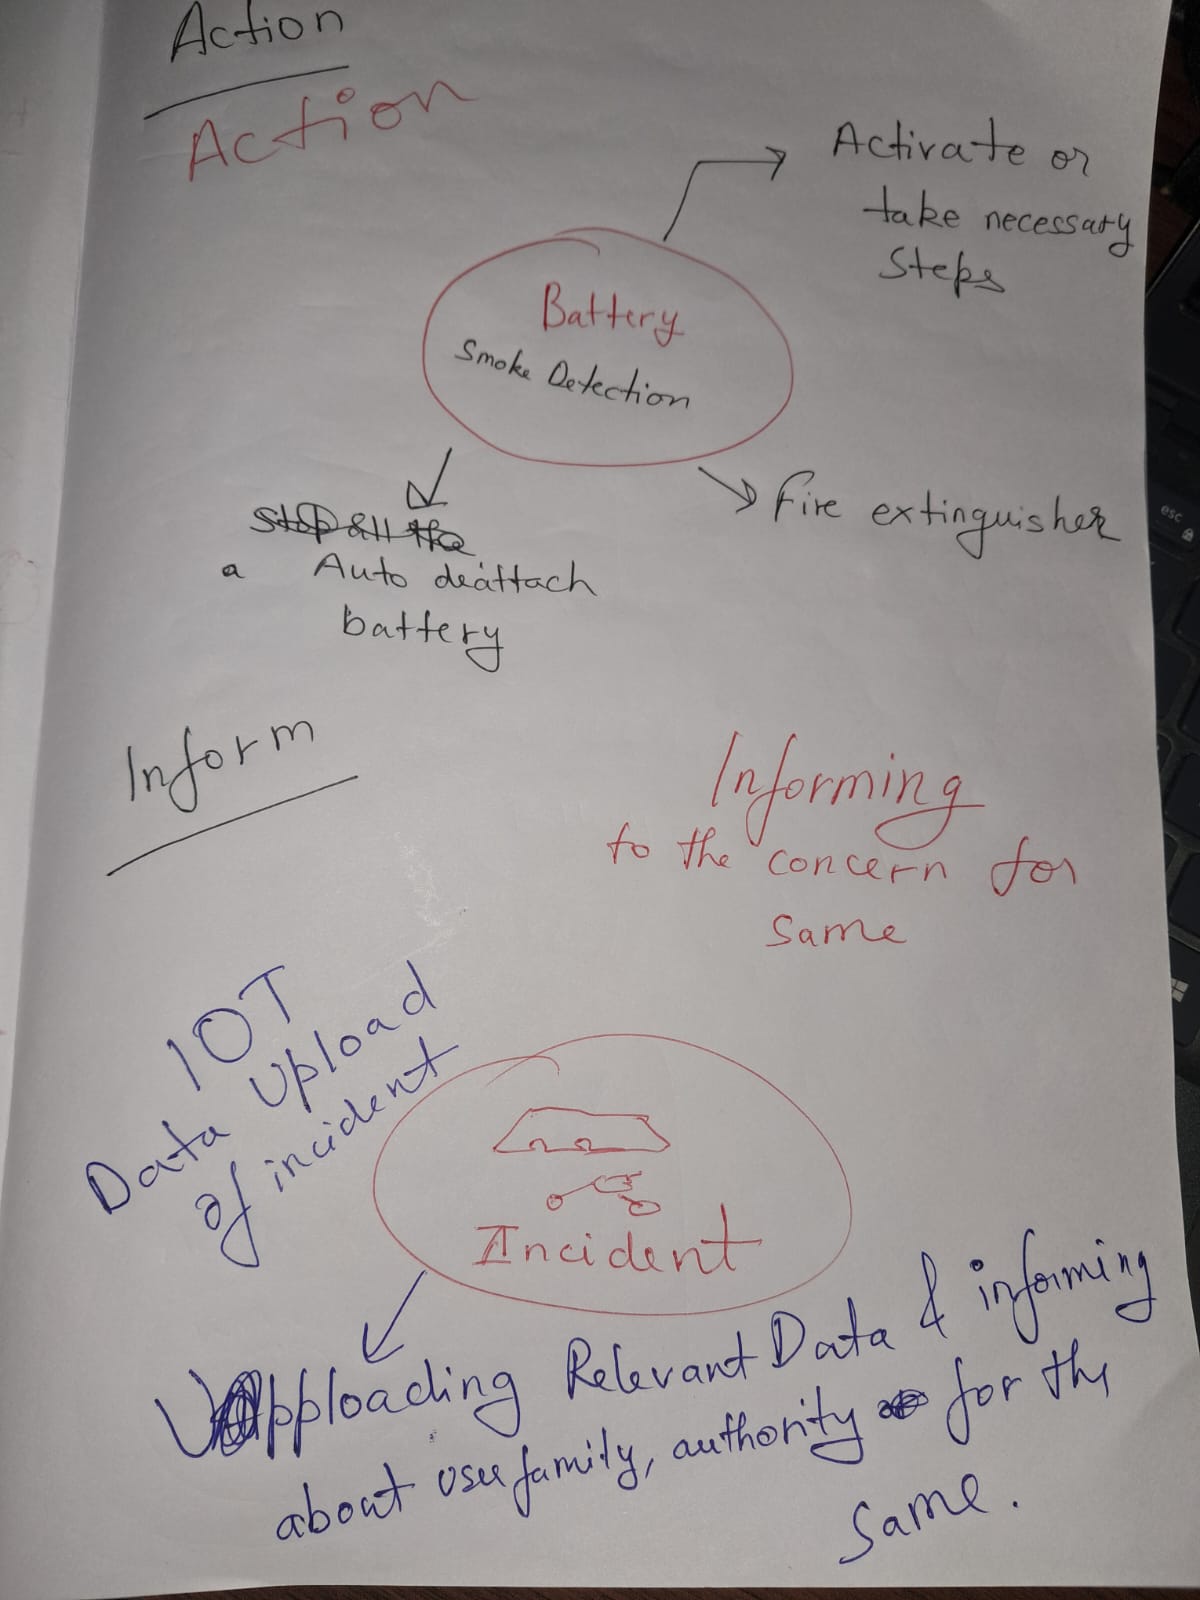 Action
Action
Activate or
take necessary
Steps
Battery
Smoke Detection
Stop all the
Fire extinguisher
a Auto deattach
battery
Inform
Informing
to the concern for
Same
IOT
Data Upload
of incident
Incident
Uploading Relevant Data & informing
about user family, authority for the
Same.
esc